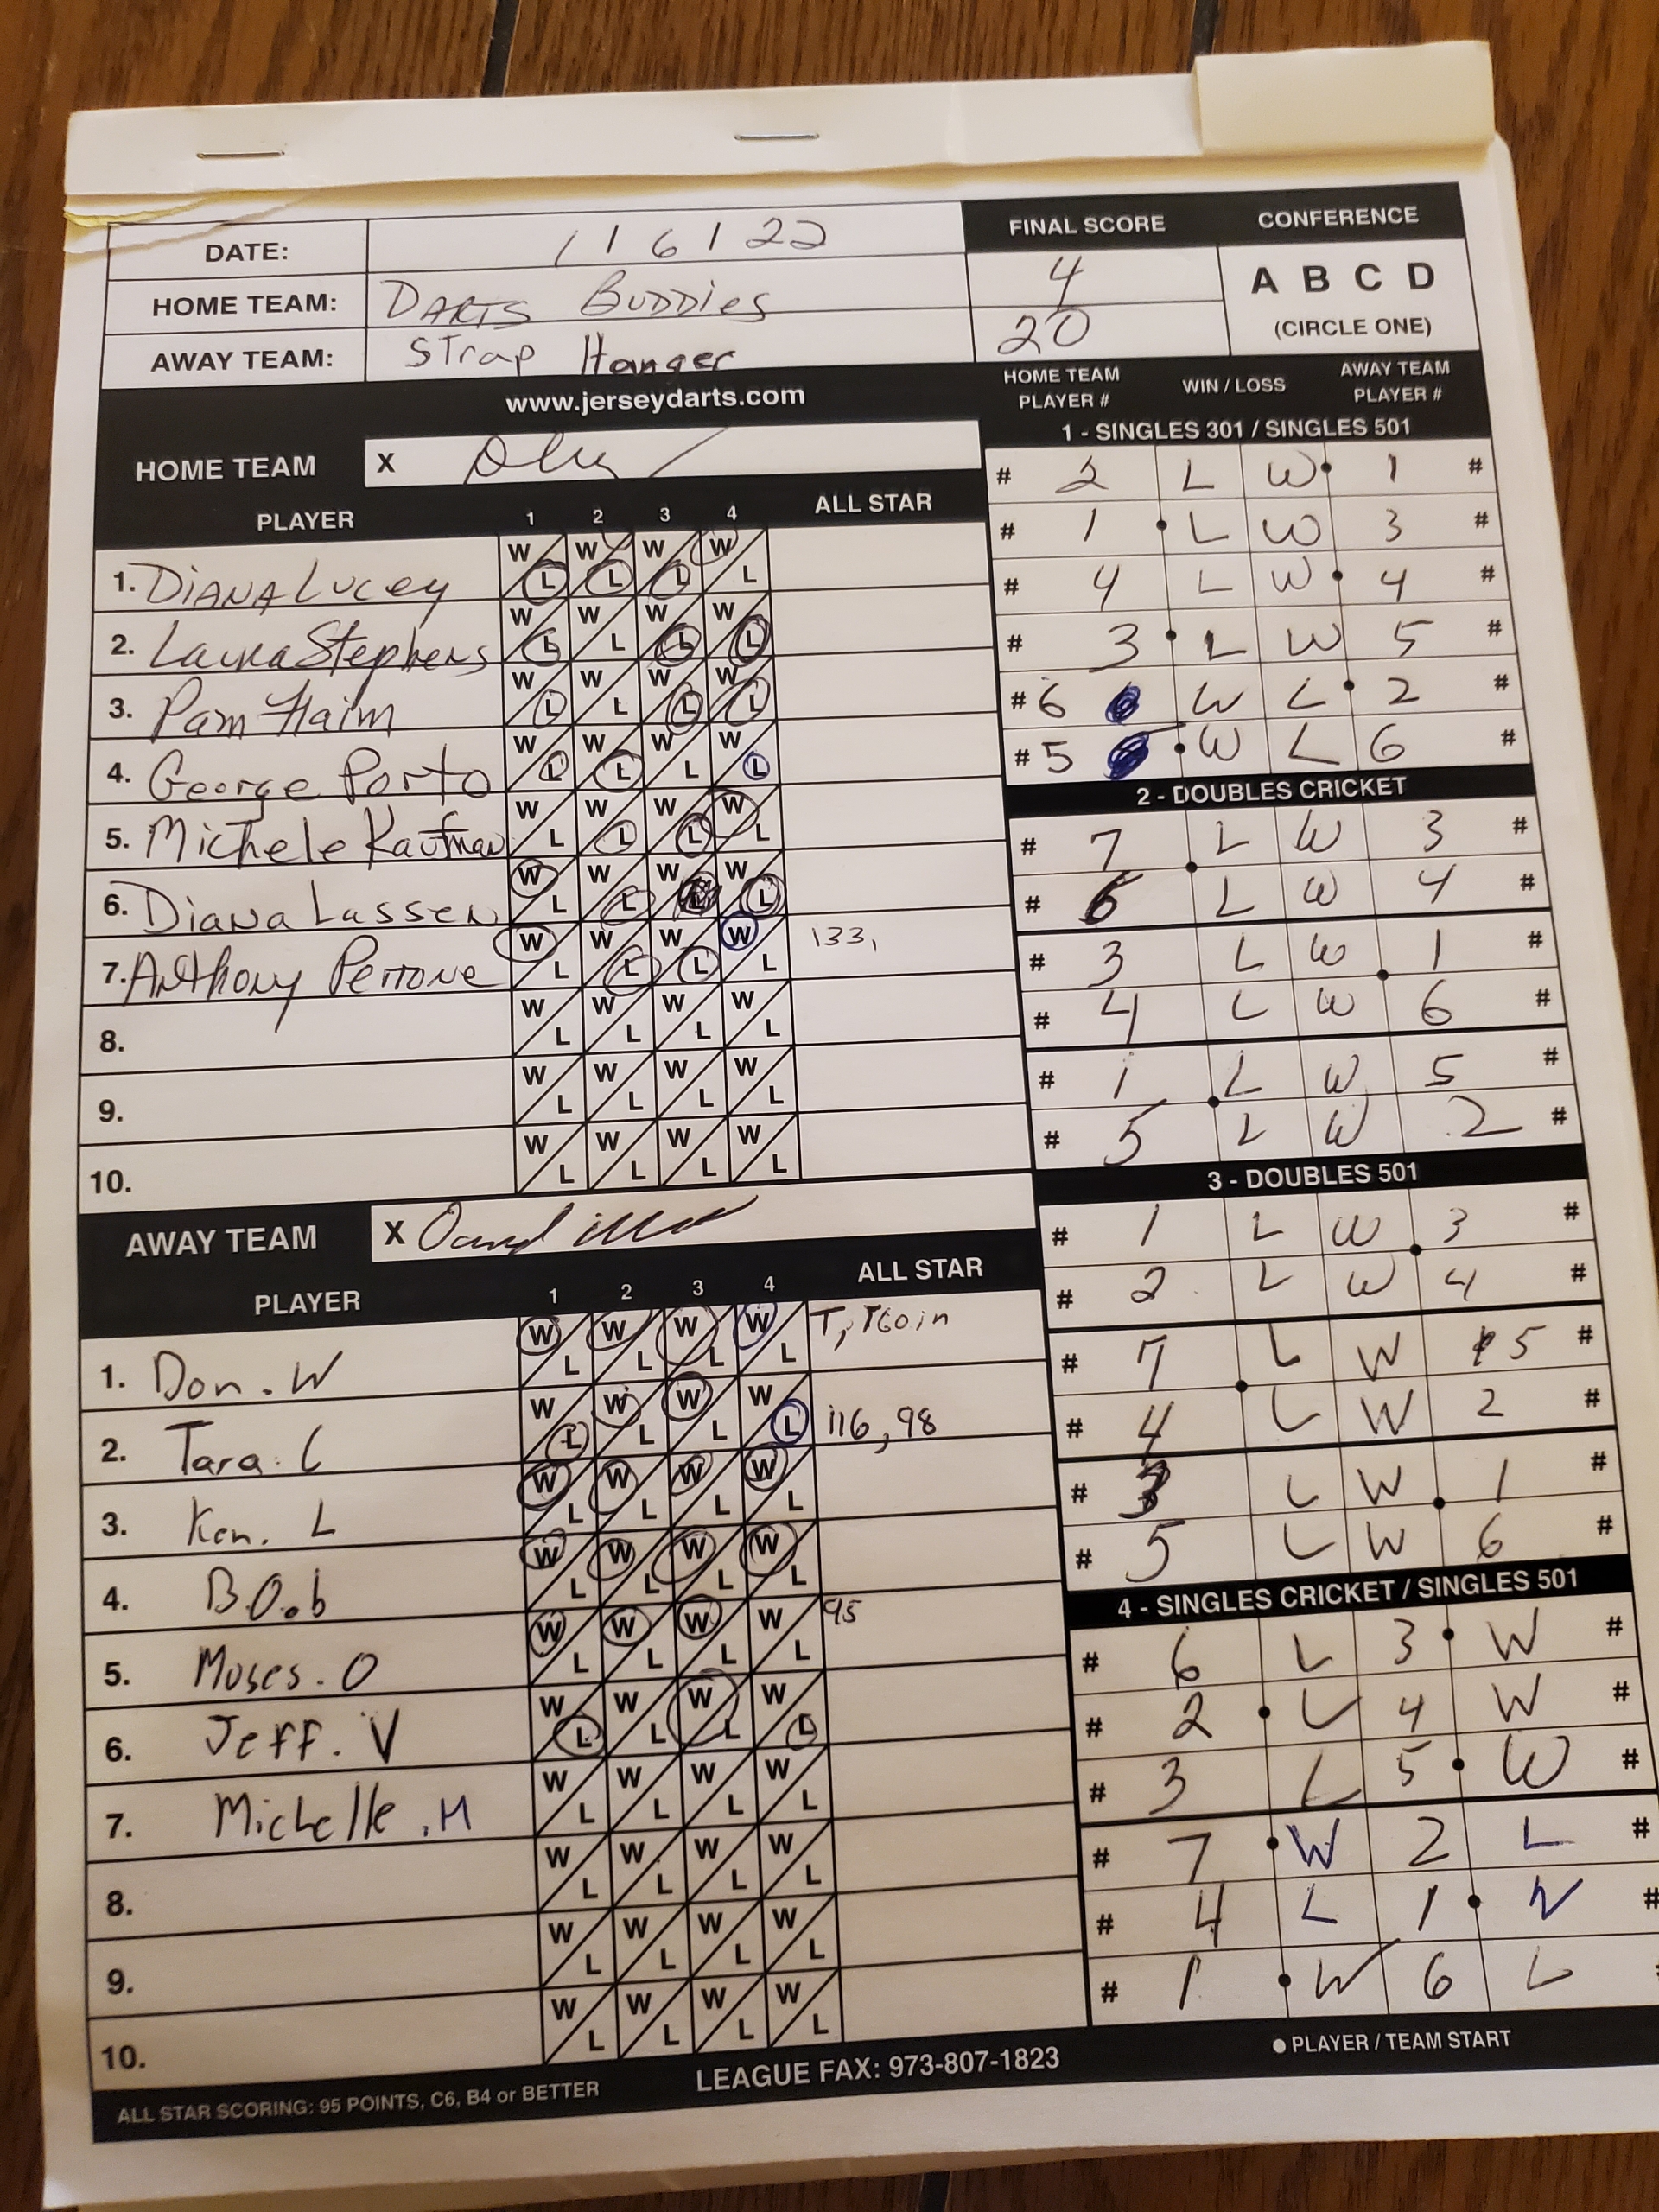 DATE: 1 1 6 1 22
HOME TEAM: DARTS BUDDIES
AWAY TEAM: STrap Hanger
FINAL SCORE
4
20
CONFERENCE
A B C D
(CIRCLE ONE)
www.jerseydarts.com
HOME TEAM X
PLAYER 1 2 3 4 ALL STAR
1. DIANA LUCEY W L W L W L W L
2. Laura Stephens W L W L W L W L
3. Pam Haim W L W L W L W L
4. George Porto W L W L W L W L
5. Michele Kaufman W L W L W L W L
6. Diana Lassen W L W L W L W L
7. Anthony Perrone W L W L W L W L 133,
8. W L W L W L W L
9. W L W L W L W L
10. W L W L W L W L
AWAY TEAM X
PLAYER 1 2 3 4 ALL STAR
1. Don. W W L W L W L W L
2. Tara. C W L W L W L W L 116, 98
3. Ken. L W L W L W L W L
4. BOb W L W L W L W L
5. Moses. O W L W L W L W L 95
6. Jeff. V W L W L W L W L
7. Michelle .M W L W L W L W L
8. W L W L W L W L
9. W L W L W L W L
10. W L W L W L W L
ALL STAR SCORING: 95 POINTS, C6, B4 or BETTER
LEAGUE FAX: 973-807-1823
HOME TEAM PLAYER # WIN / LOSS AWAY TEAM PLAYER #
1 - SINGLES 301 / SINGLES 501
# 2 L W 1 #
# 1 L W 3 #
# 4 L W 4 #
# 3 L W 5 #
# 6 W L 2 #
# 5 W L 6 #
2 - DOUBLES CRICKET
# 7 L W 3 #
# 6 L W 4 #
# 3 L W 1 #
# 4 L W 6 #
# 1 L W 5 #
# 5 L W 2 #
3 - DOUBLES 501
# 1 L W 3 #
# 2 L W 4 #
# 7 L W 5 #
# 4 L W 2 #
# 3 L W 1 #
# 5 L W 6 #
4 - SINGLES CRICKET / SINGLES 501
# 6 L 3 W #
# 2 L 4 W #
# 3 L 5 W #
# 7 W 2 L #
# 4 L 1 W #
# 1 W 6 L #
● PLAYER / TEAM START